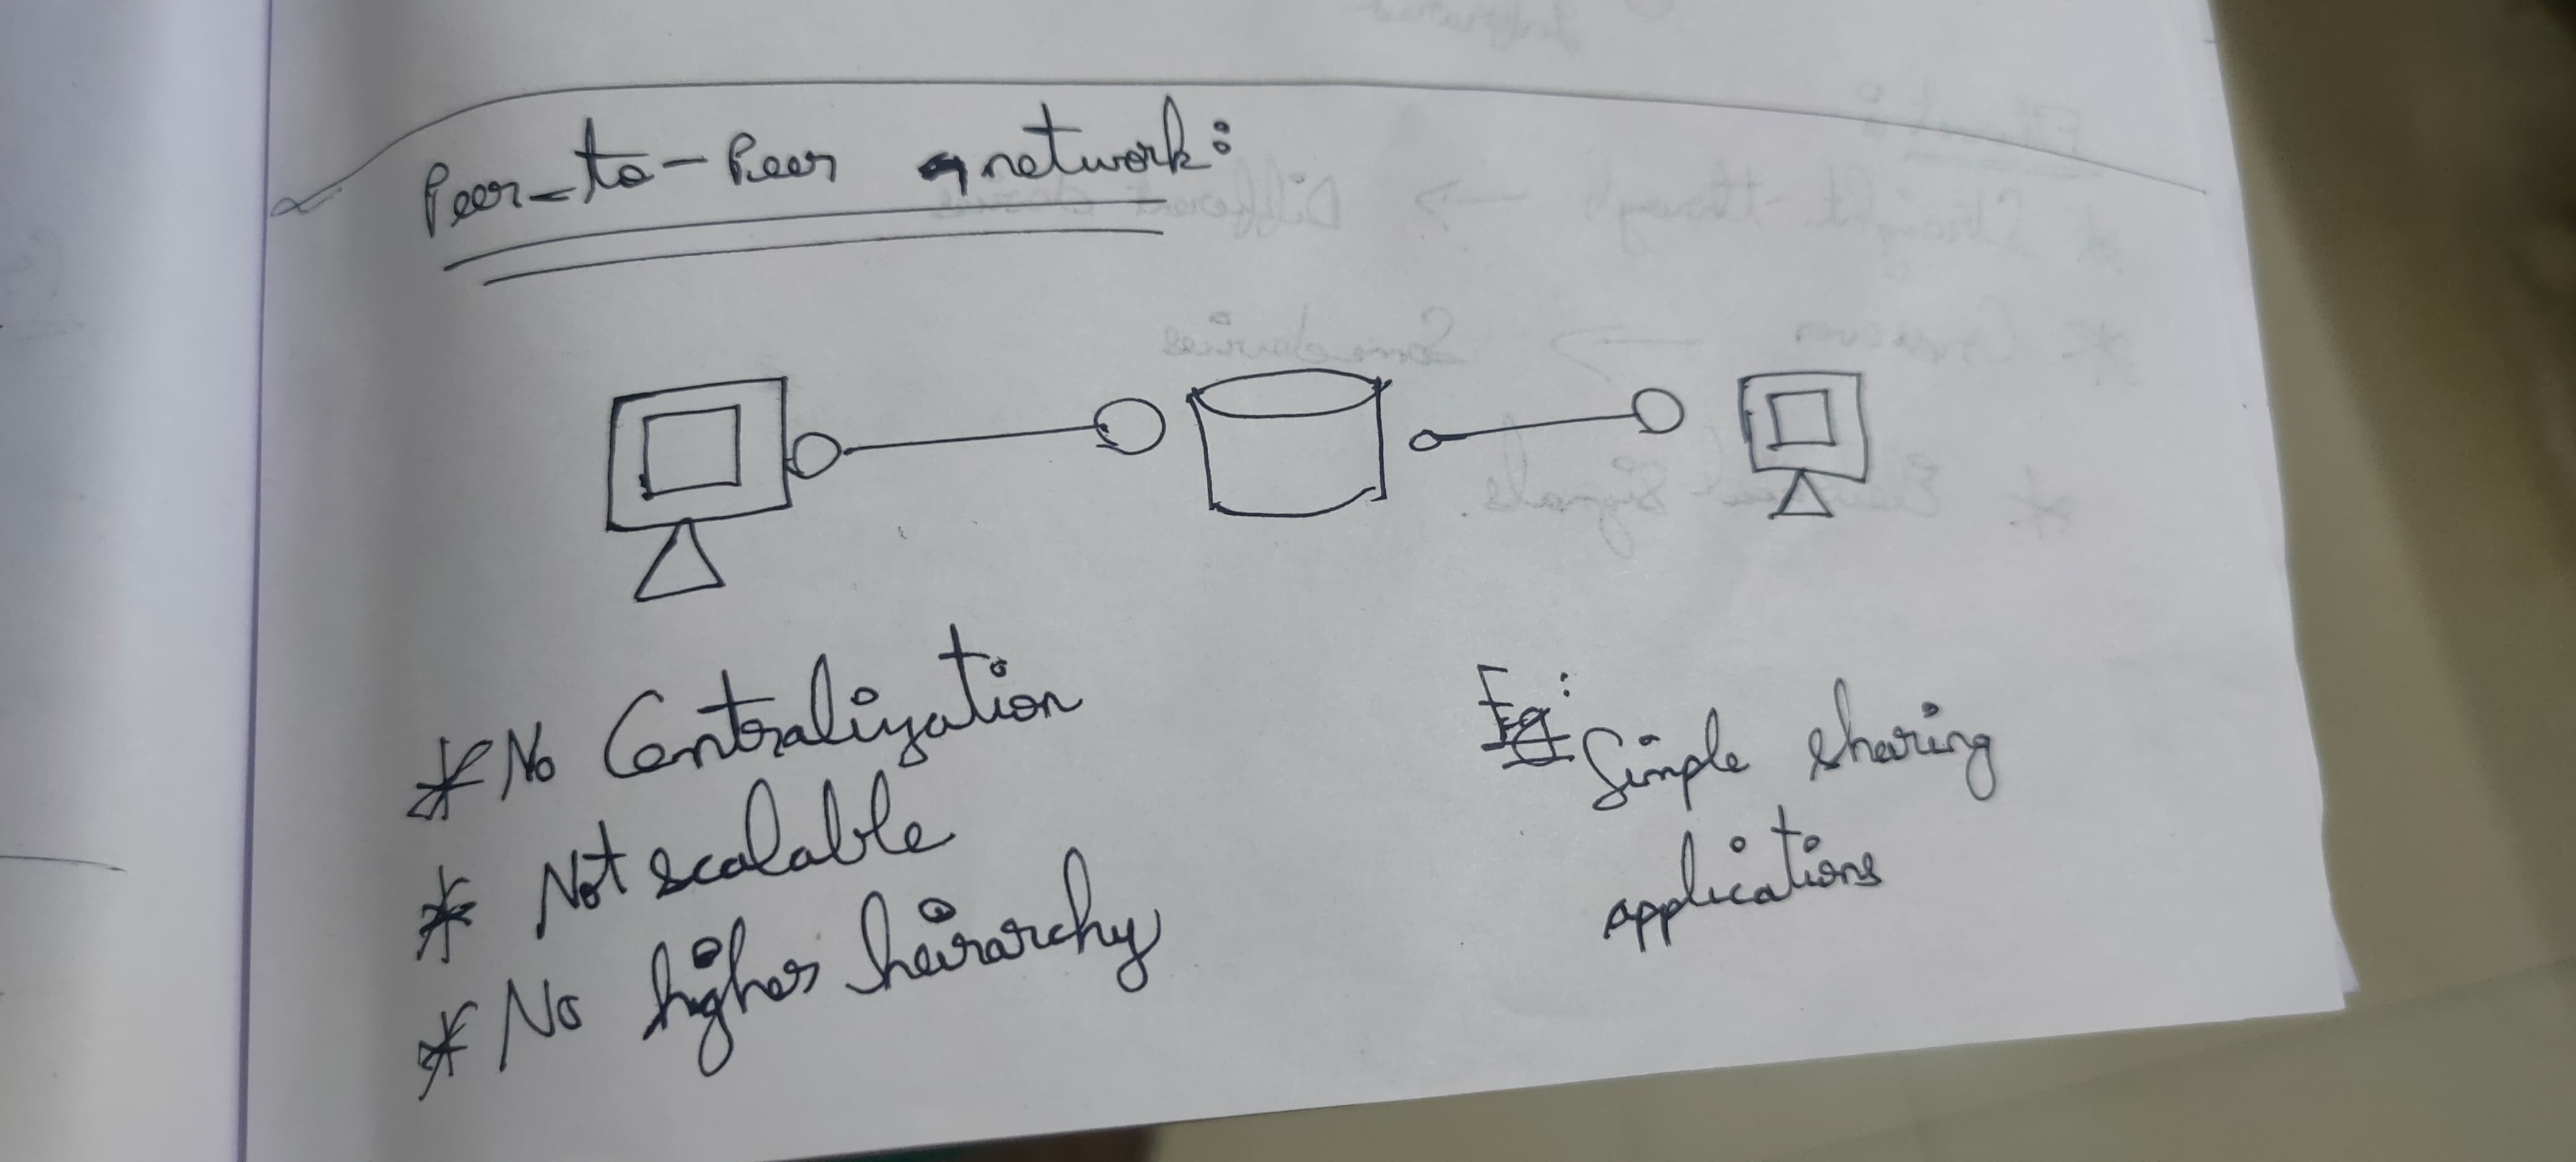 Peer-to-Peer network:
* No Centralization
* Not scalable
* No higher heirarchy
Eg:
Simple sharing
applications